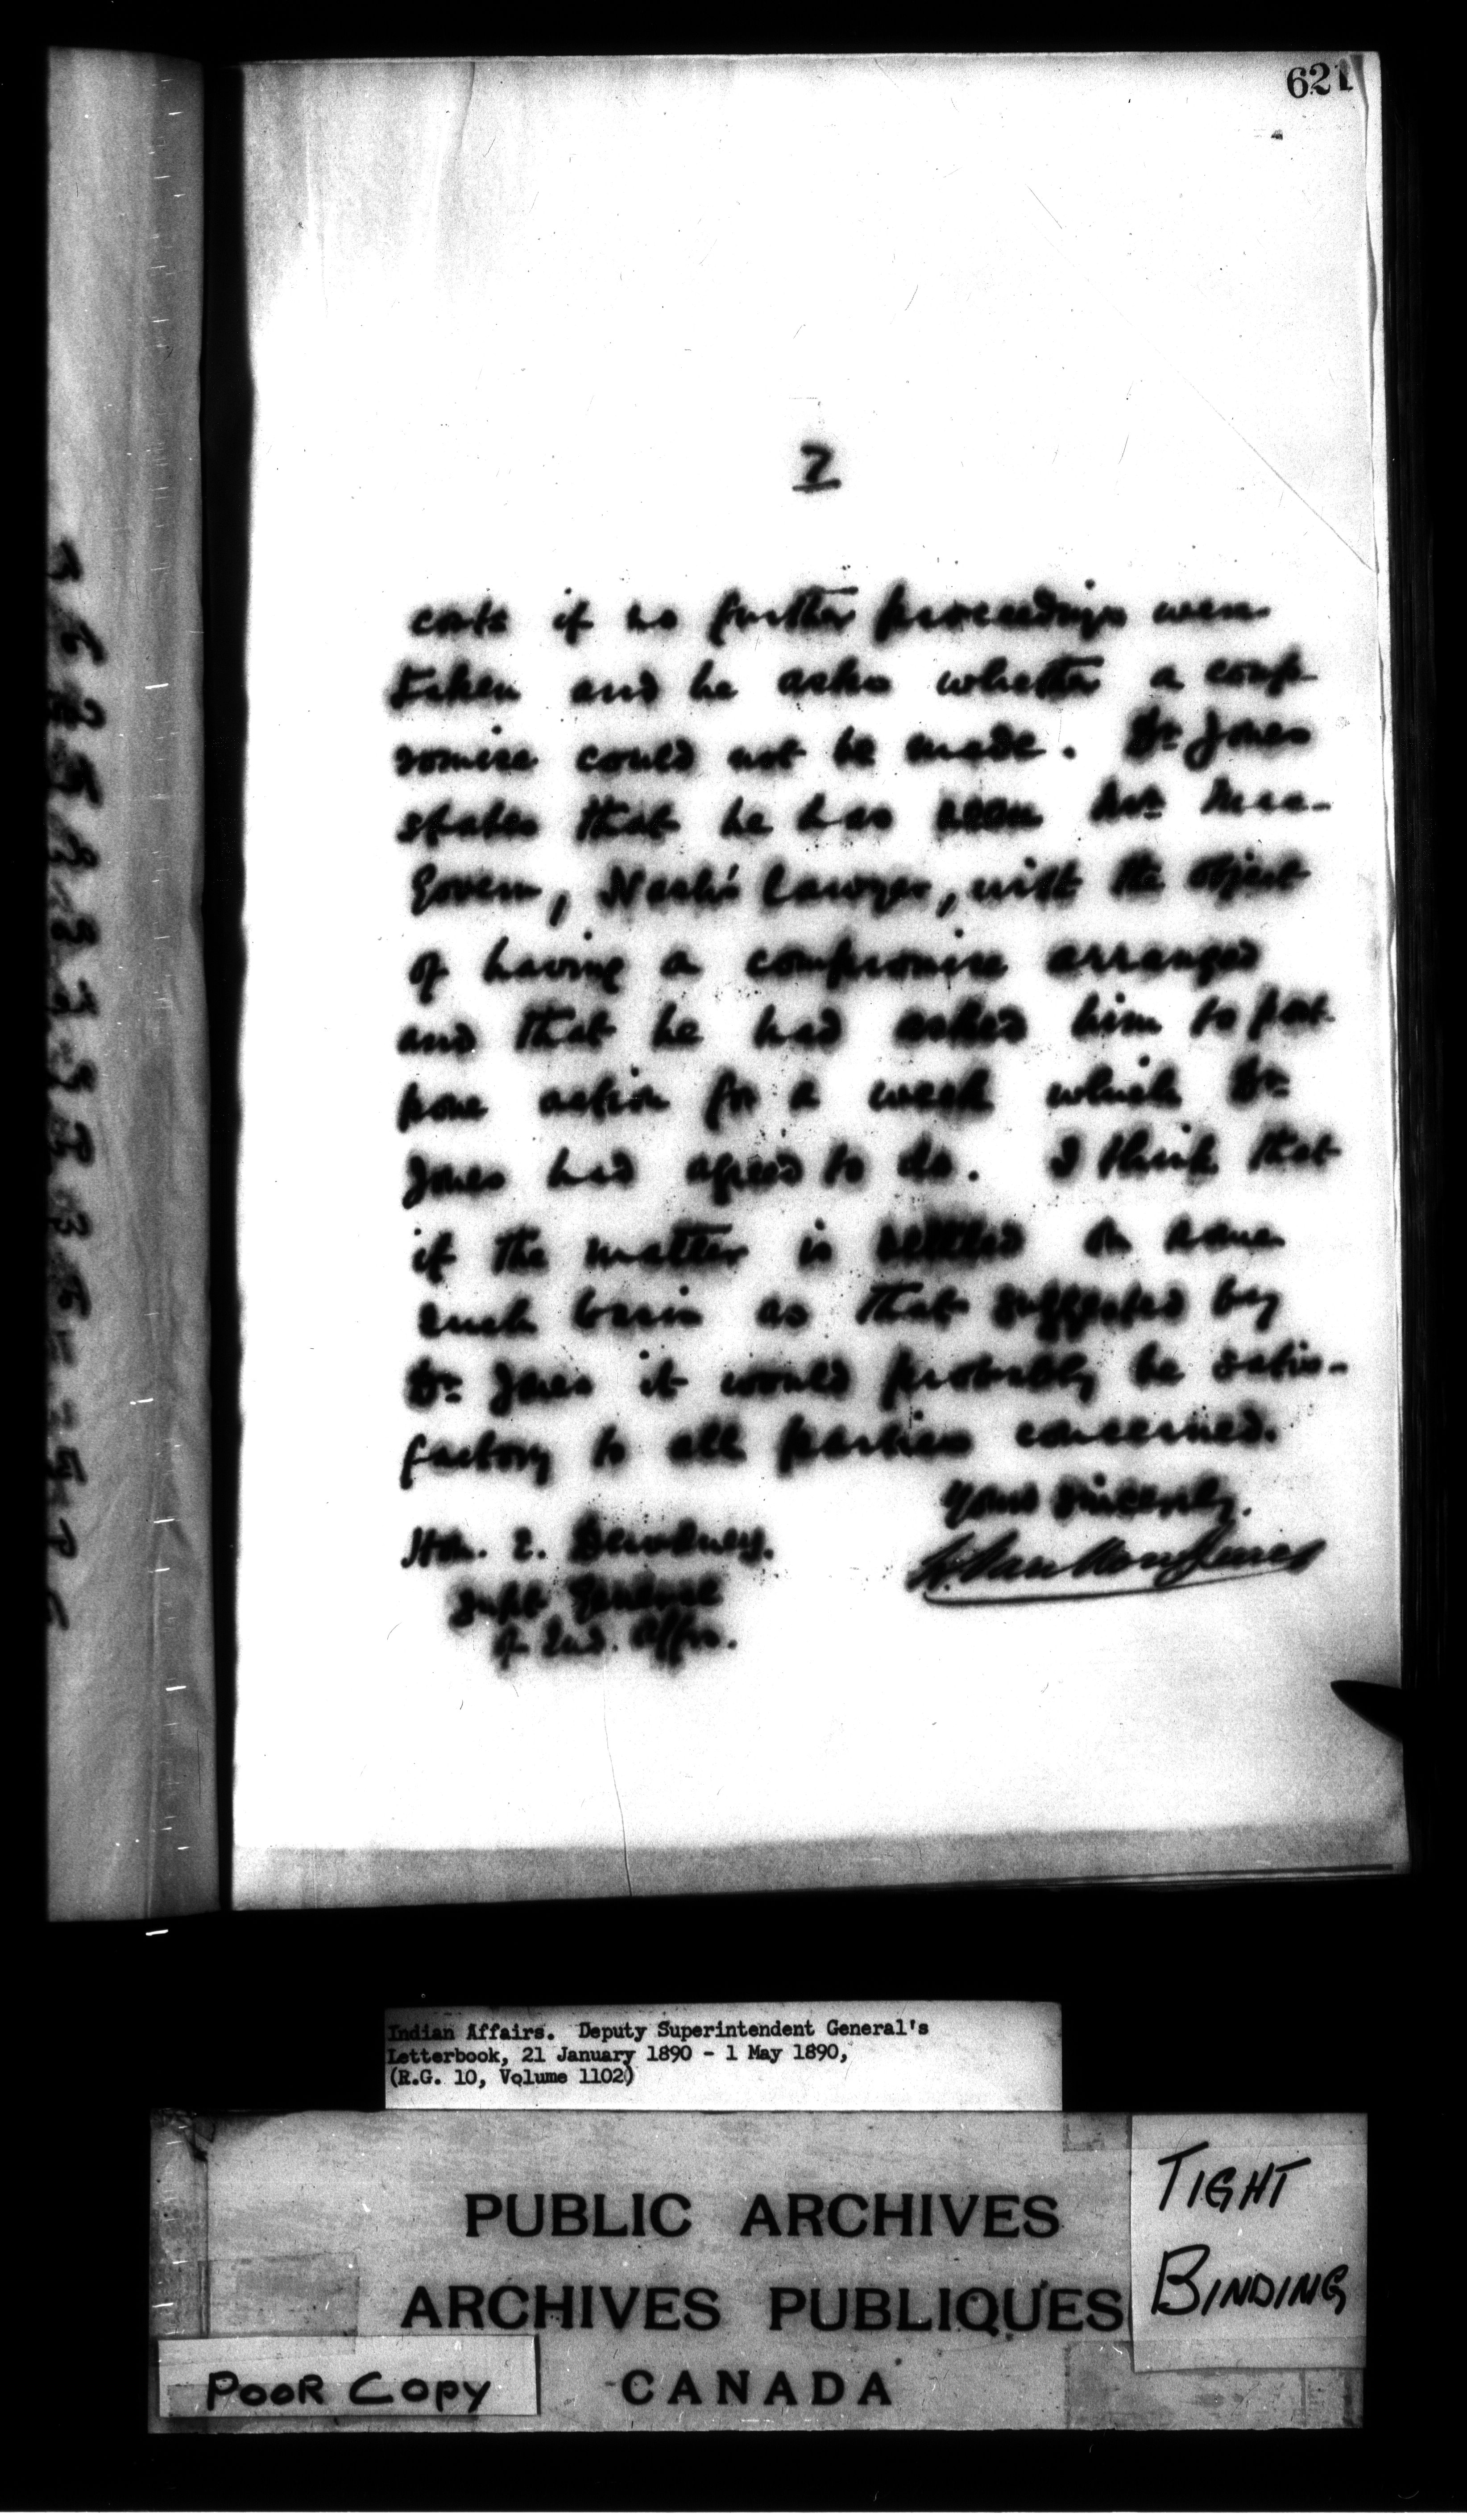 621
2
costs if no further proceedings were
taken and he asks whether a comp-
romise could not be made. Dr Jones
states that he has seen Mr. Mac-
Govern, Nash's lawyer, with the object
of having a compromise arranged
and that he had asked him to post-
pone action for a week which Dr.
Jones had agreed to do. I think that
if the matter is settled on some
such basis as that suggested by
Dr. Jones it would probably be satis-
factory to all parties concerned.
Yours sincerely.
L. Vankoughnet
Hon. E. Dewdney.
Supt General
of Ind. Affrs.
Indian Affairs. Deputy Superintendent General's
Letterbook, 21 January 1890 - 1 May 1890,
(R.G. 10, Volume 1102)
PUBLIC ARCHIVES
ARCHIVES PUBLIQUES
CANADA
TIGHT
BINDING
POOR COPY